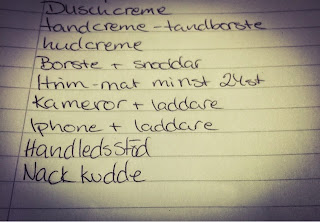 Duschcreme
tandcreme - tandborste
hudcreme
Borste + snoddar
Htrim-mat minst 24st
kameror + laddare
Iphone + laddare
Handledsstöd
Nack kudde